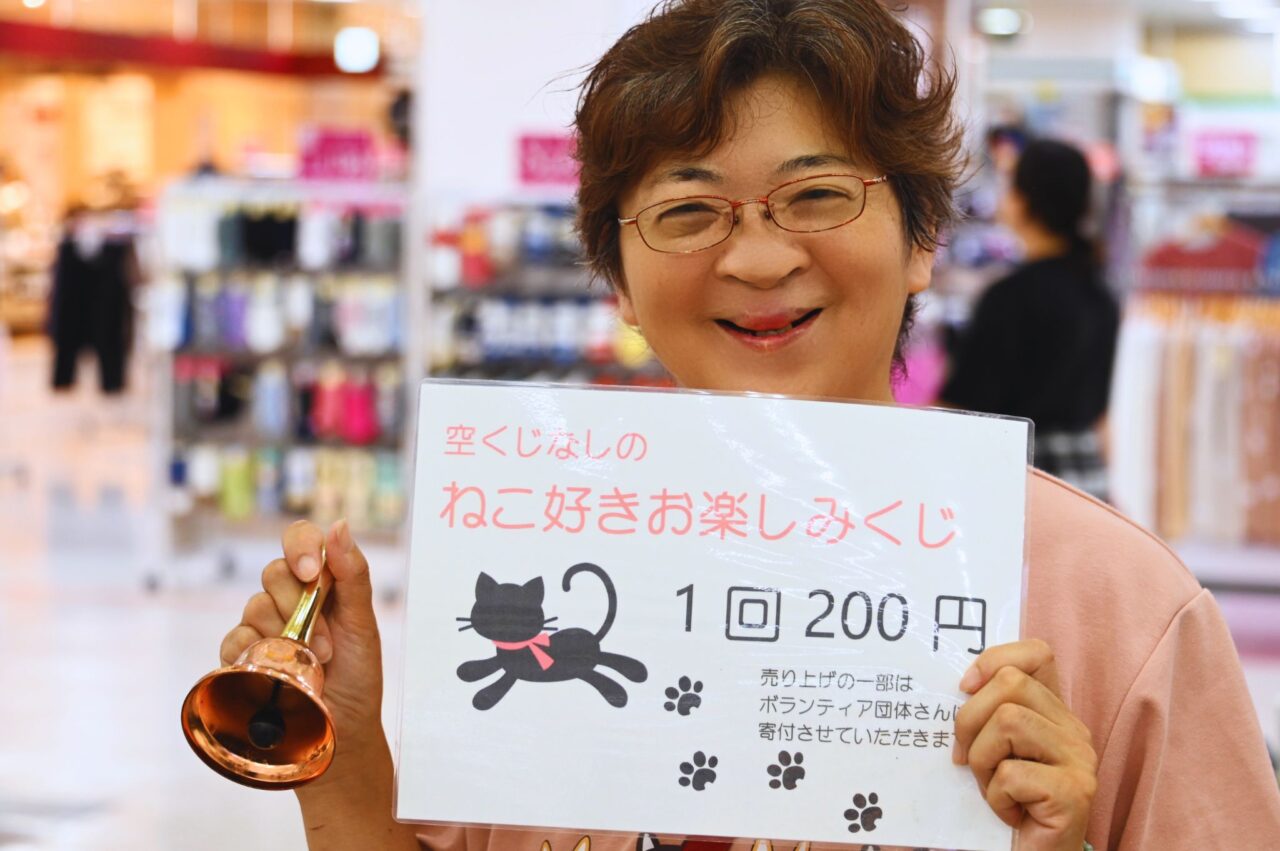 空くじなしの
ねこ好きお楽しみくじ
1回200円
売り上げの一部は
ボランティア団体さんに
寄付させていただきま